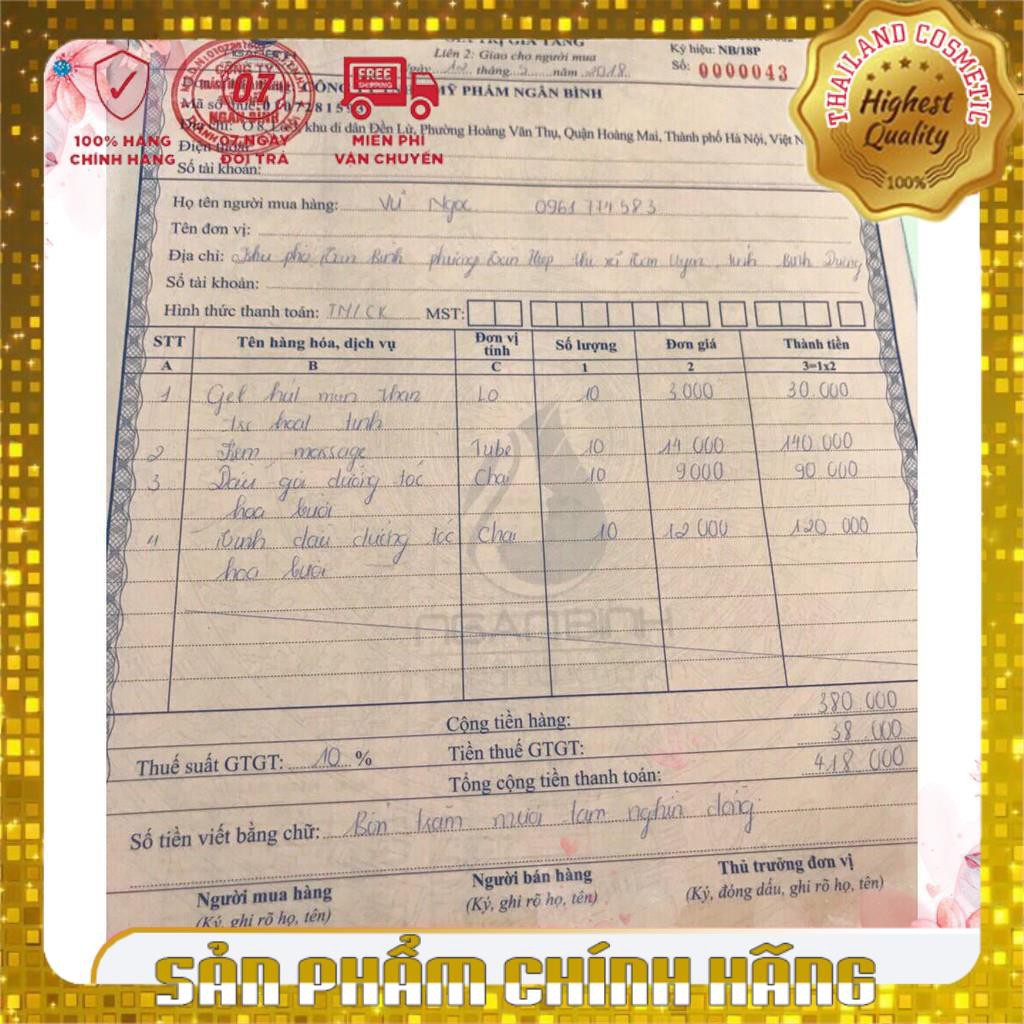 GIÁ TRỊ GIA TĂNG
Liên 2: Giao cho người mua
tháng 2 năm 2018
Ký hiệu: NB/18P
Số: 0000043
THAILAND COSMETIC
Highest
Quality
100%
100% HÀNG
CHÍNH HÃNG
07
NGÂN BÌNH
07 NGÀY
ĐỔI TRẢ
FREE
SHIPPING
MIỄN PHÍ
VẬN CHUYỂN
MỸ PHẨM NGÂN BÌNH
Mã số thuế:
khu di dân Đền Lừ, Phường Hoàng Văn Thụ, Quận Hoàng Mai, Thành phố Hà Nội, Việt N
Điện thoại
Số tài khoản:
Họ tên người mua hàng: Vũ Ngọc 0961 774 583
Tên đơn vị:
Địa chỉ: Khu phố Tân Bình phường Tân Hiệp thị xã Tân Uyên, tỉnh Bình Dương
Số tài khoản:
Hình thức thanh toán: TM/CK MST:
STT Tên hàng hóa, dịch vụ Đơn vị tính Số lượng Đơn giá Thành tiền
A B C 1 2 3=1x2
1 Gel hút mụn than Lọ 10 3.000 30.000
hoạt tính
2 Kem massage Tube 10 14 000 140.000
3 Dầu gội dưỡng tóc Chai 10 9000 90 000
hoa bưởi
4 Tinh dầu dưỡng tóc Chai 10 12 000 120 000
hoa bưởi
NGANBINH
Cộng tiền hàng: 380 000
Thuế suất GTGT: 10 % Tiền thuế GTGT: 38 000
Tổng cộng tiền thanh toán: 418 000
Số tiền viết bằng chữ: Bốn trăm mười tám nghìn đồng
Người mua hàng Người bán hàng Thủ trưởng đơn vị
(Ký, ghi rõ họ, tên) (Ký, ghi rõ họ, tên) (Ký, đóng dấu, ghi rõ họ, tên)
SẢN PHẨM CHÍNH HÃNG